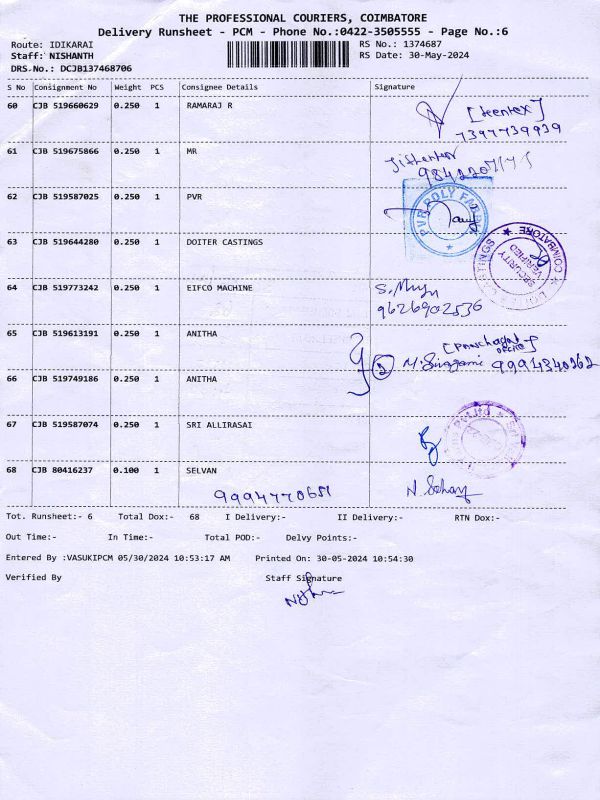 THE PROFESSIONAL COURIERS, COIMBATORE
Delivery Runsheet - PCM - Phone No.:0422-3505555 - Page No.:6
Route: IDIKARAI RS No.: 1374687
Staff: NISHANTH RS Date: 30-May-2024
DRS No.: DCJB137468706
S No Consignment No Weight PCS Consignee Details Signature
60 CJB 519660629 0.250 1 RAMARAJ R
7397739939
61 CJB 519675866 0.250 1 MR
62 CJB 519587025 0.250 1 PVR
PVR POLY FAB
63 CJB 519644280 0.250 1 DOITER CASTINGS
COIMBATORE
SECURITY
VERIFIED
64 CJB 519773242 0.250 1 EIFCO MACHINE
9626902536
65 CJB 519613191 0.250 1 ANITHA
[Panchayat
office]
2 9994840262
66 CJB 519749186 0.250 1 ANITHA
67 CJB 519587074 0.250 1 SRI ALLIRASAI
68 CJB 80416237 0.100 1 SELVAN
9994770651
Tot. Runsheet:- 6 Total Dox:- 68 I Delivery:- II Delivery:- RTN Dox:-
Out Time:- In Time:- Total POD:- Delvy Points:-
Entered By :VASUKIPCM 05/30/2024 10:53:17 AM Printed On: 30-05-2024 10:54:30
Verified By Staff Signature